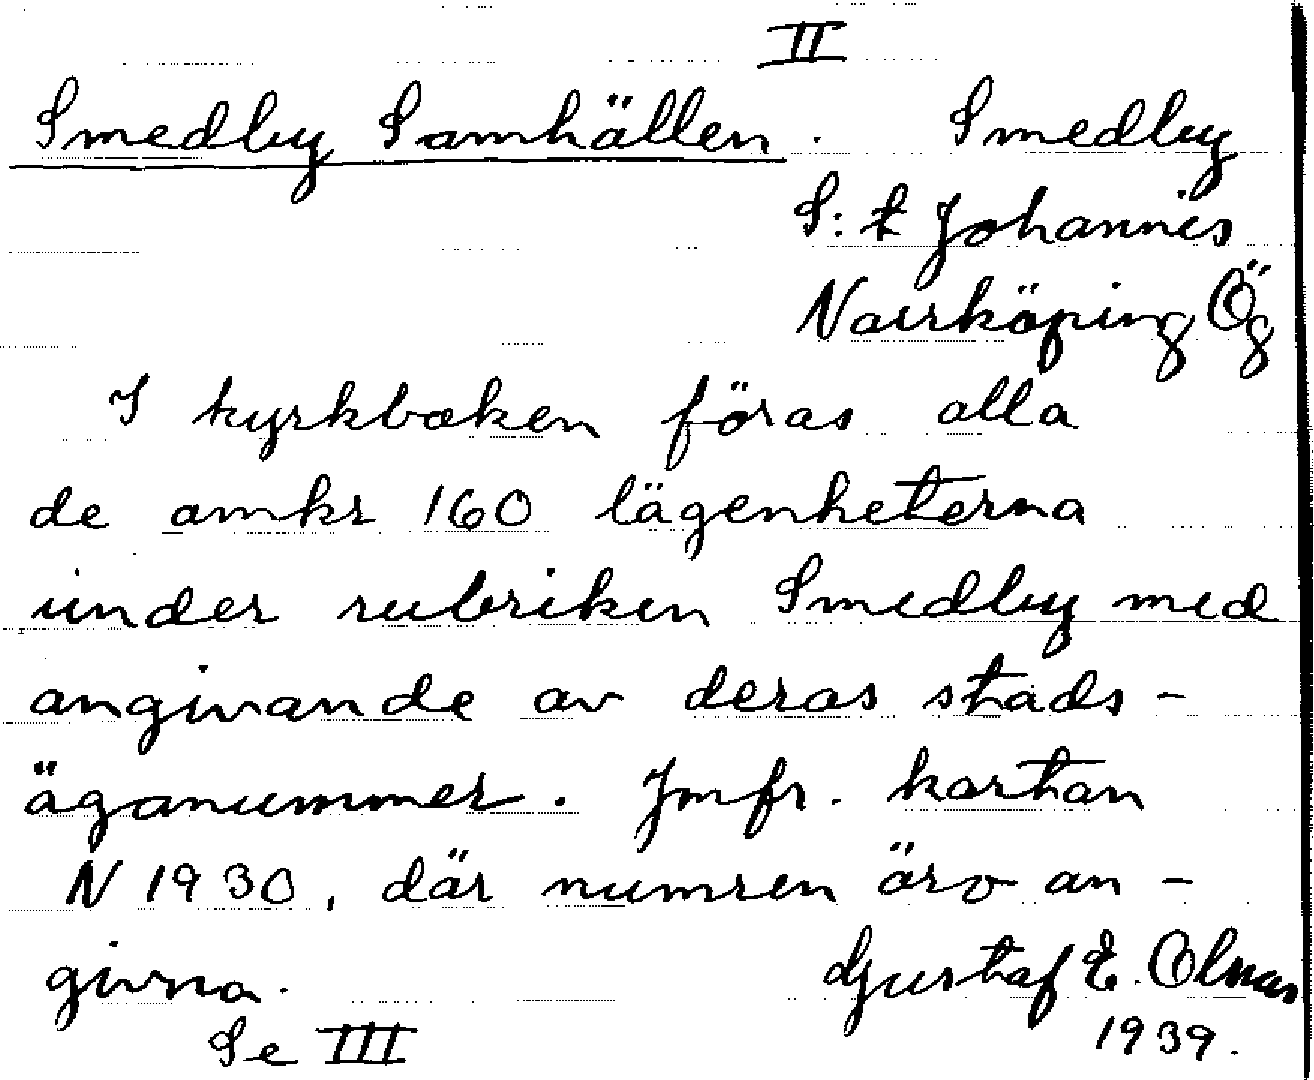 II
Smedby Samhällen. Smedby
S:t Johannis
Norrköping Ög
I kyrkboken föras alla
de omkr 160 lägenheterna
under rubriken Smedby med
angivande av deras stads-
äganummer. Jmfr. kartan
N 1930, där numren äro an-
givna. Gustaf E. Olmas
Se III 1939.